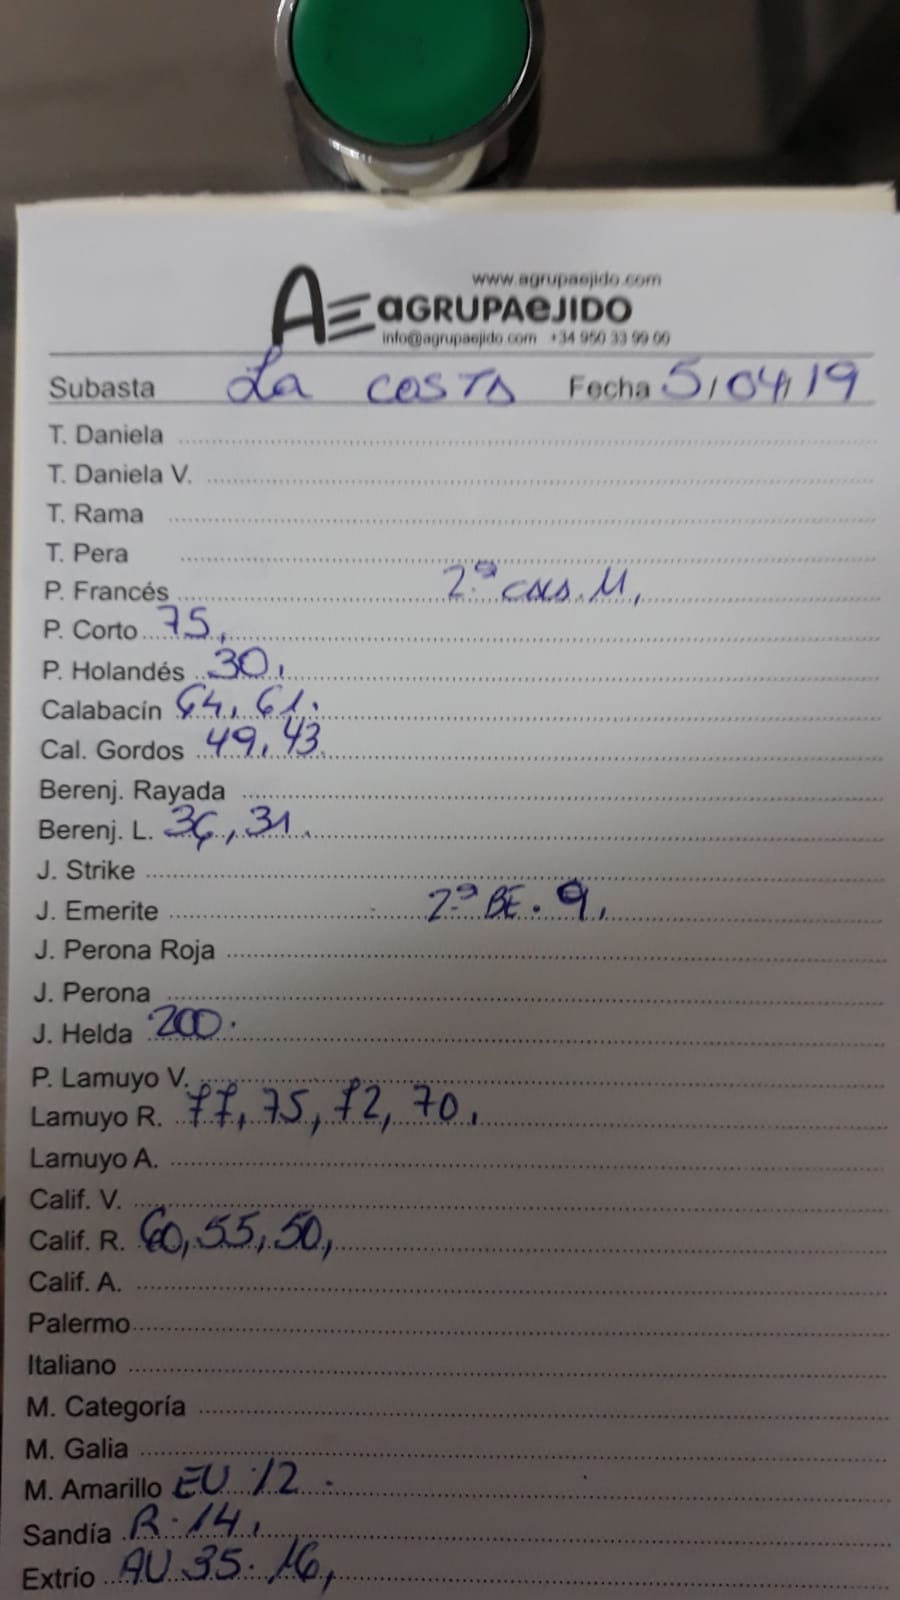 www.agrupaejido.com
AE aGRUPAeJIDO
info@agrupaejido.com +34 950 33 99 00
Subasta La COSTA Fecha 5/04/19
T. Daniela
T. Daniela V.
T. Rama
T. Pera
P. Francés 2ª CAL. 11,
P. Corto 75,
P. Holandés 30,
Calabacín 64, 61.
Cal. Gordos 49, 43.
Berenj. Rayada
Berenj. L. 36, 31.
J. Strike
J. Emerite 2ª BE. 9,
J. Perona Roja
J. Perona
J. Helda 200.
P. Lamuyo V.
Lamuyo R. 77, 75, 72, 70,
Lamuyo A.
Calif. V.
Calif. R. 60, 55, 50,
Calif. A.
Palermo
Italiano
M. Categoría
M. Galia
M. Amarillo EU 12.
Sandía R. 14,
Extrío AU 35. 16,